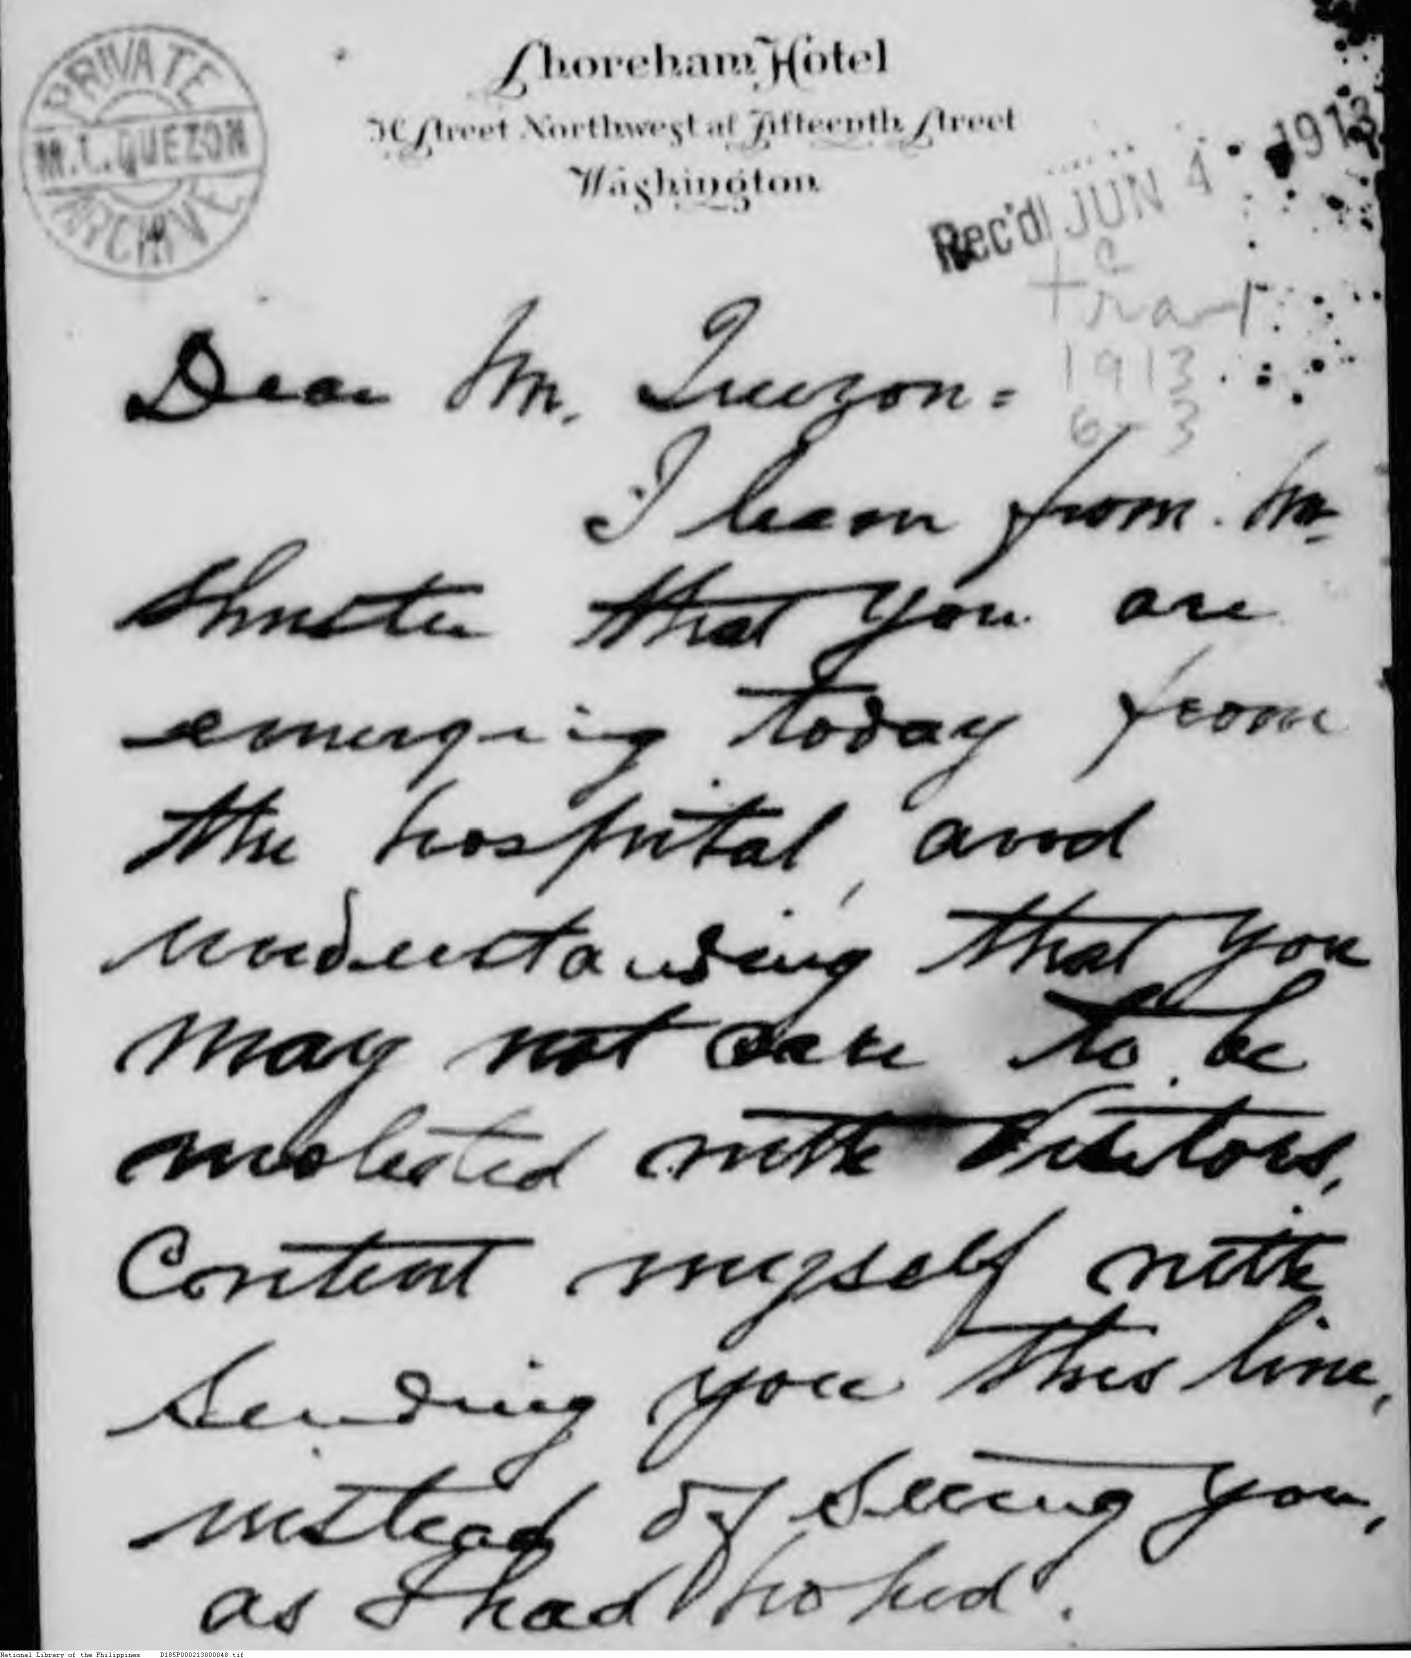 PRIVATE
M.L. QUEZON
ARCHIVE
Shoreham Hotel
H Street Northwest at Fifteenth Street
Washington
Rec'd JUN 4 1913
1913
6-3
Dear Mr. Quezon:
I learn from Mr.
Shuster that you are
emerging today from
the hospital, and
understanding that you
may not care to be
molested with visitors,
content myself with
sending you this line,
instead of seeing you,
as I had hoped.
National Library of the Philippines D185P000213800048.tif